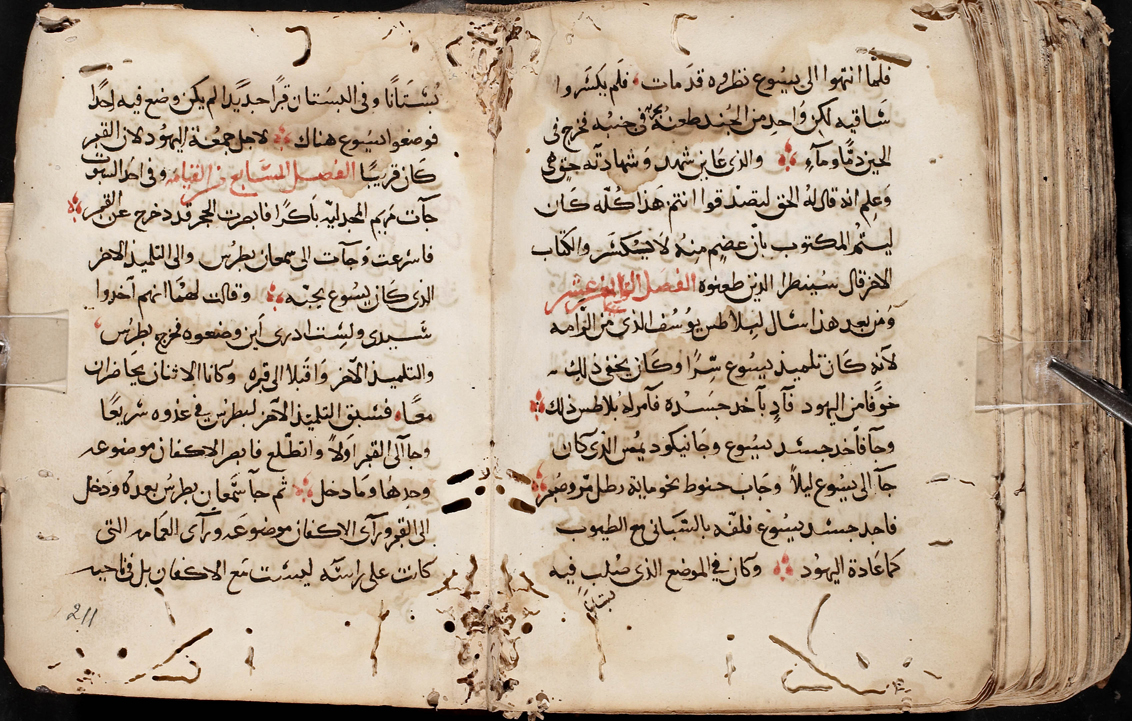 فلما انتهوا الى يسوع نظروه قد مات فلم يكسروا
ساقيه لكن واحد من الجند طعنه بحربه في جنبه فخرج في
الحين دما وماء والذي عاين شهد وشهادته حق هي
وعلم انه قال له الحق لتصدقوا انتم هذا كله كان
ليتم المكتوب بان عضم منه لا ينكسر والكتاب
الاخر قال سينظرا الدين طعنوه الفصل الرابع عشر
ومن بعد هذا سال لبيلاطس يوسف الذي من الرامه
لانه كان تلميد ليسوع سرا وكان يخفي دلك
خوفا من اليهود فادن باخد جسده فامر له بلاطس دلك
وجا فاخد جسد يسوع وجا نيكوديمس الذي كان
جا الى يسوع ليلا وجاب حنوط نحو ماية رطل مر وصبر
فاخد جسد يسوع فلفه بالسباني مع الطيوب
كما عادة اليهود وكان في الموضع الذي صلب فيه
بستانا
بستانا وفي البستان قبرا جديدا لم يكن وضع فيه احدا
فوضعوا ليسوع هناك لاجل جمعة اليهود لان القبر
كان قريبا الفصل السابع في القيامه وفي احد السبوت
جات مريم المجدلية باكرا فابصرت الحجر قد دخرج عن القبر
فاسرعت وجات الى سمعان بطرس والى التلميد الاخر
الذي كان يسوع يحبه وقالت لهما انهم اخدوا
سيدي ولست ادري اين وضعوه فخرج بطرس
والتلميد الاخر واقبلا الى قبره وكانا الاثنان يحاضران
معا فسبق التلميد الاخر لبطرس في غدوه سريعا
وجا الى القبر اولا واتطلع فابصر الاكفان موضوعه
وحدها وما دخل ثم جا سمعان بطرس بعده ودخل
الى القبر وراى الاكفان موضوعه وراى العمامه التي
كانت على راسه ليست مع الاكفان بل في ناحيه
211